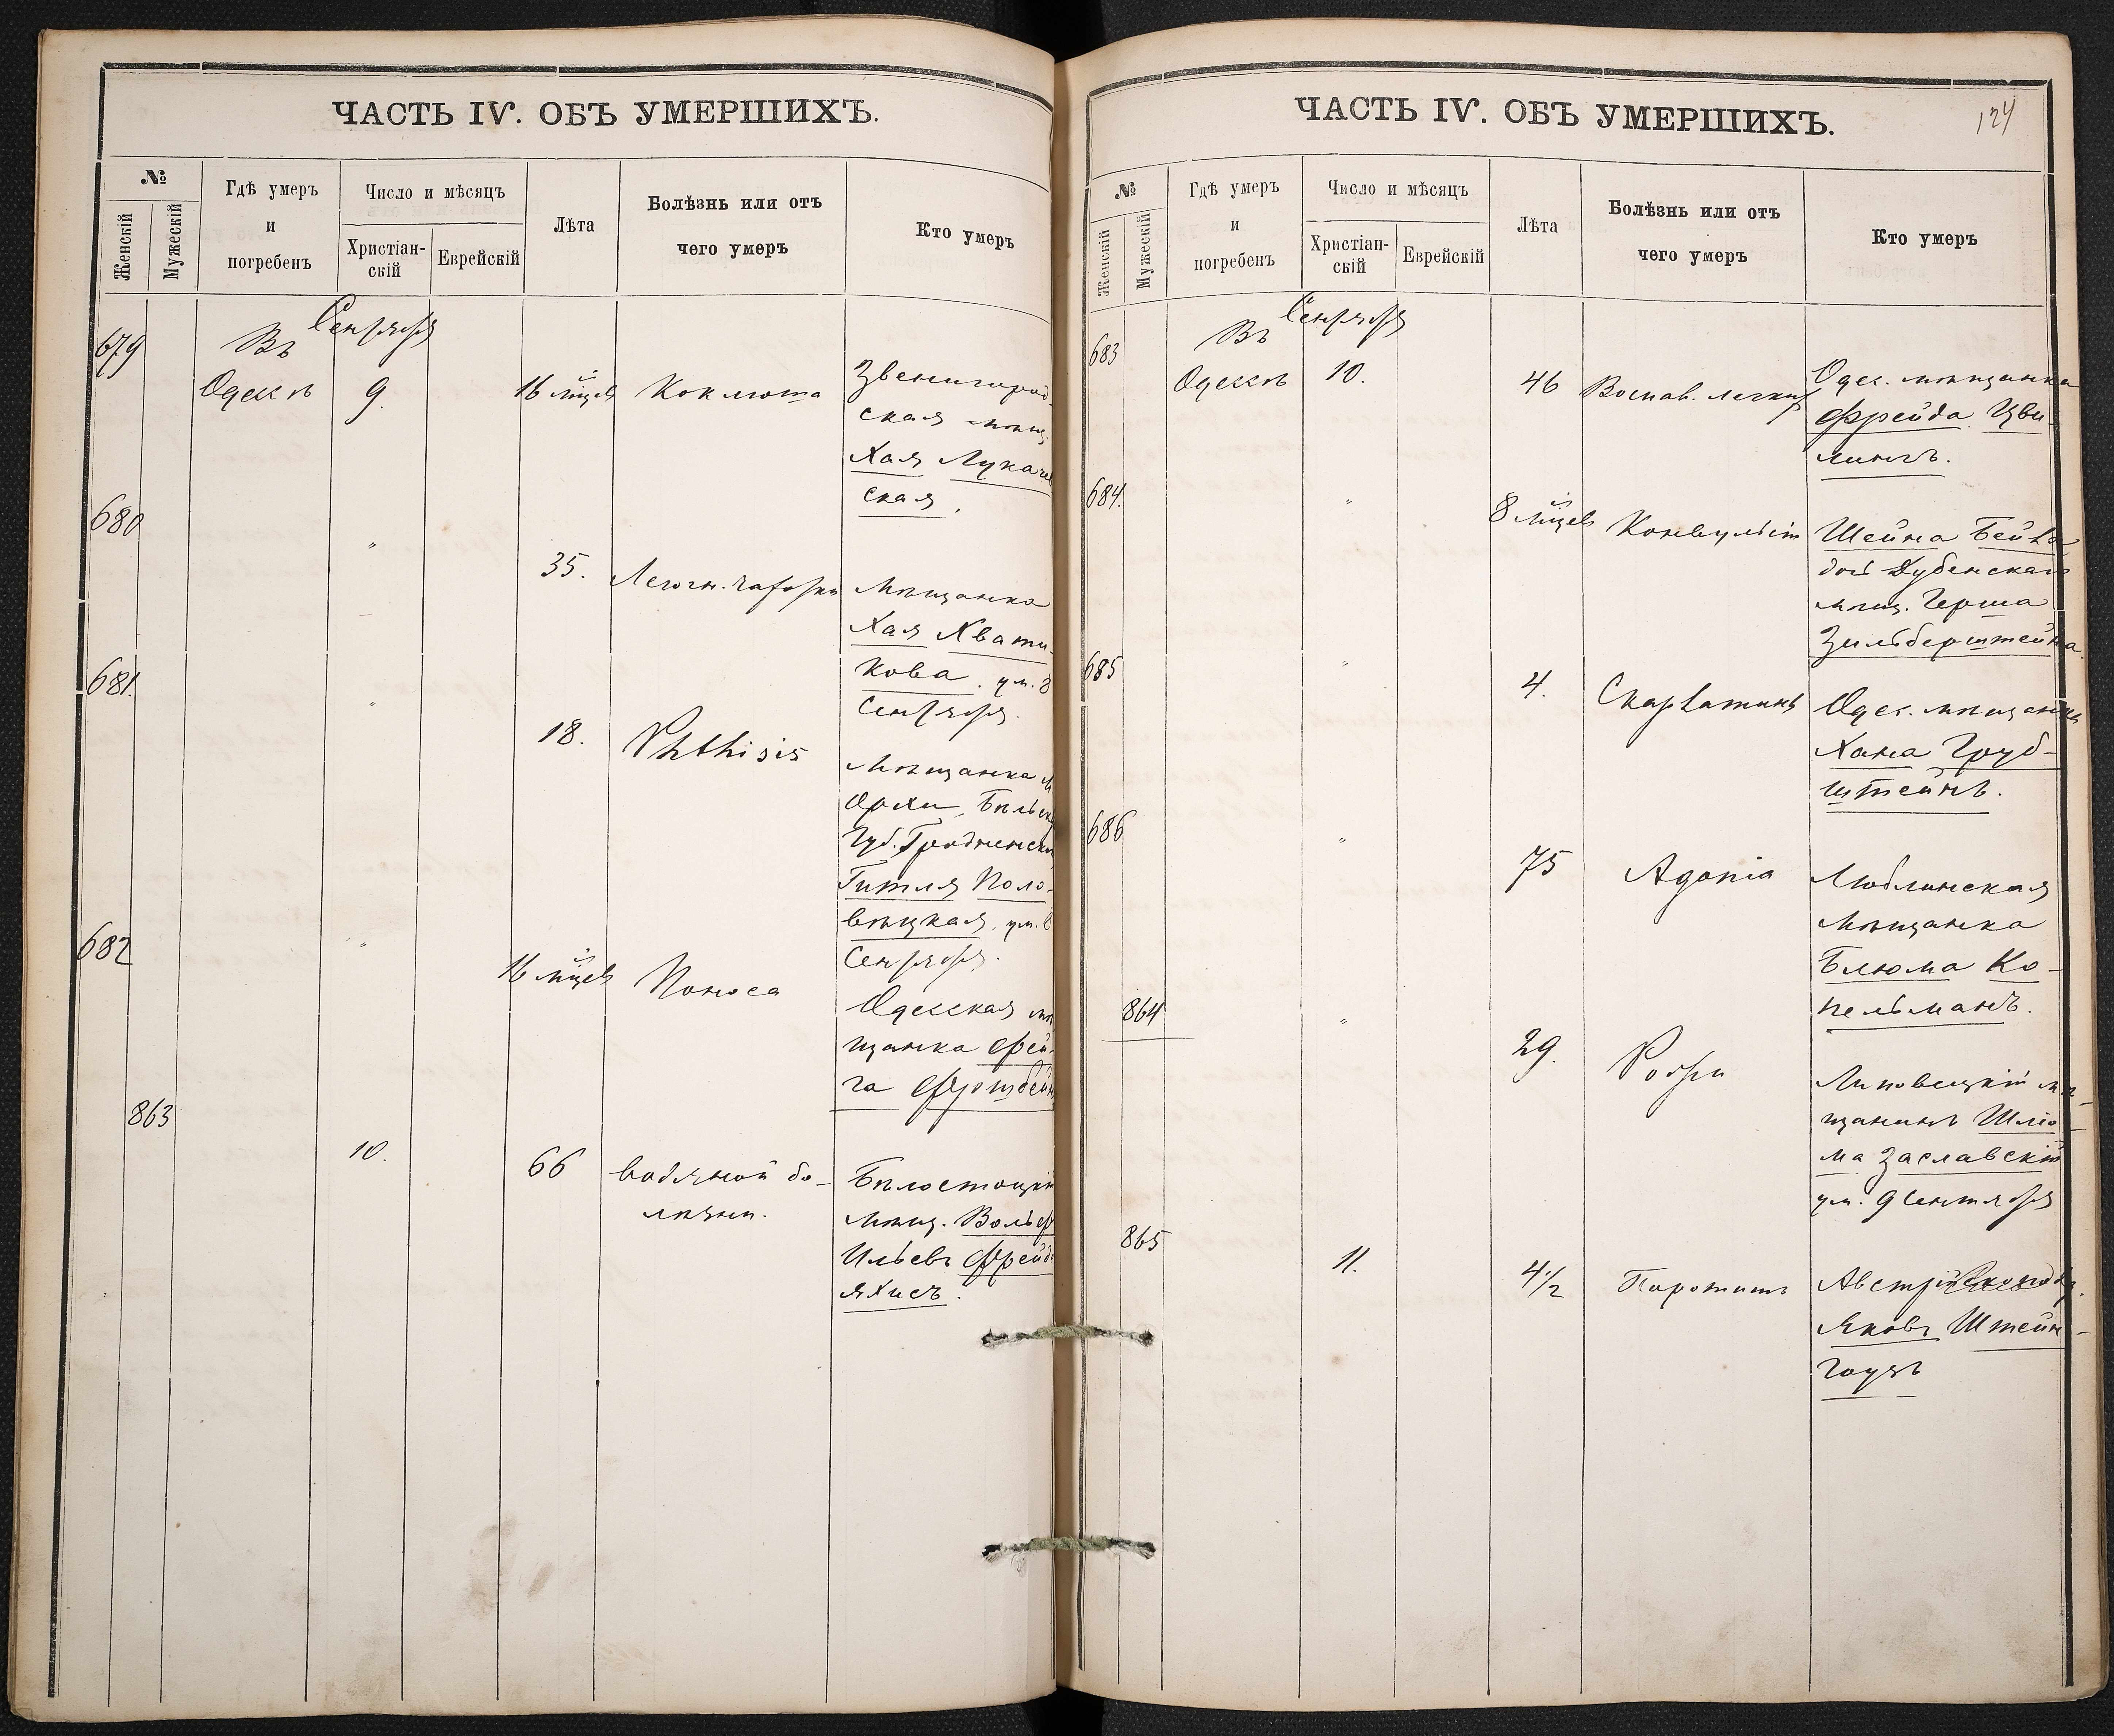 ЧАСТЬ IV. ОБЪ УМЕРШИХЪ.
№
Женскій
Мужескій
Гдѣ умеръ
и
погребенъ
Число и мѣсяцъ
Христіан-
скій
Еврейскій
Лѣта
Болѣзнь или отъ
чего умеръ
Кто умеръ
Сентября
679
Въ
Одессѣ
9.
16 мѣсяцевъ
Коклюша
Звенигород-
ская мѣщ.
Хая Лукачев
ская.
680
"
35.
Легочн. чахотки
Мѣщанка
Хая Хвати-
кова. ум. 8
Сентября.
681.
"
18.
Phthisis
Мѣщанка м.
Орли, Бѣльск
Губ. Гродненской
Гитля Поло-
вецкая, ум. 8
Сентября.
682
"
16 мѣсяцевъ
Поноса
Одесская мѣ
щанка Фей-
га
863
10.
66
водяной бо-
лѣзни.
Бѣлостоцкій
мѣщ. Вольф
Ильевъ Фрейд
яхисъ.
ЧАСТЬ IV. ОБЪ УМЕРШИХЪ.
124
№
Женскій
Мужескій
Гдѣ умеръ
и
погребенъ
Число и мѣсяцъ
Христіан-
скій
Еврейскій
Лѣта
Болѣзнь или отъ
чего умеръ
Кто умеръ
Сентября
683
Въ
Одессѣ
10.
46
Воспал. легких
Одес. мѣщанка
Фрейда Цви-
лингъ.
684.
"
8 мѣсяцевъ
Конвульсіи
Шейна Бейла
дочь Дубенскаго
мѣщ. Герша
Зильберштейна.
685
"
4.
Скарлатинъ
Одес. мѣщанка
Хана Груб-
штейнъ.
686
"
75
Agonia
Люблинская
мѣщанка
Блюма Ко-
пельманъ.
864
"
29.
Липовецкій мѣ-
щанинъ Шлио-
ма Заславскій
ум. 9 Сентября
865
11.
4 1/2
Паротитъ
Австрійскоподд.
Яковъ Штейн-
гаузъ